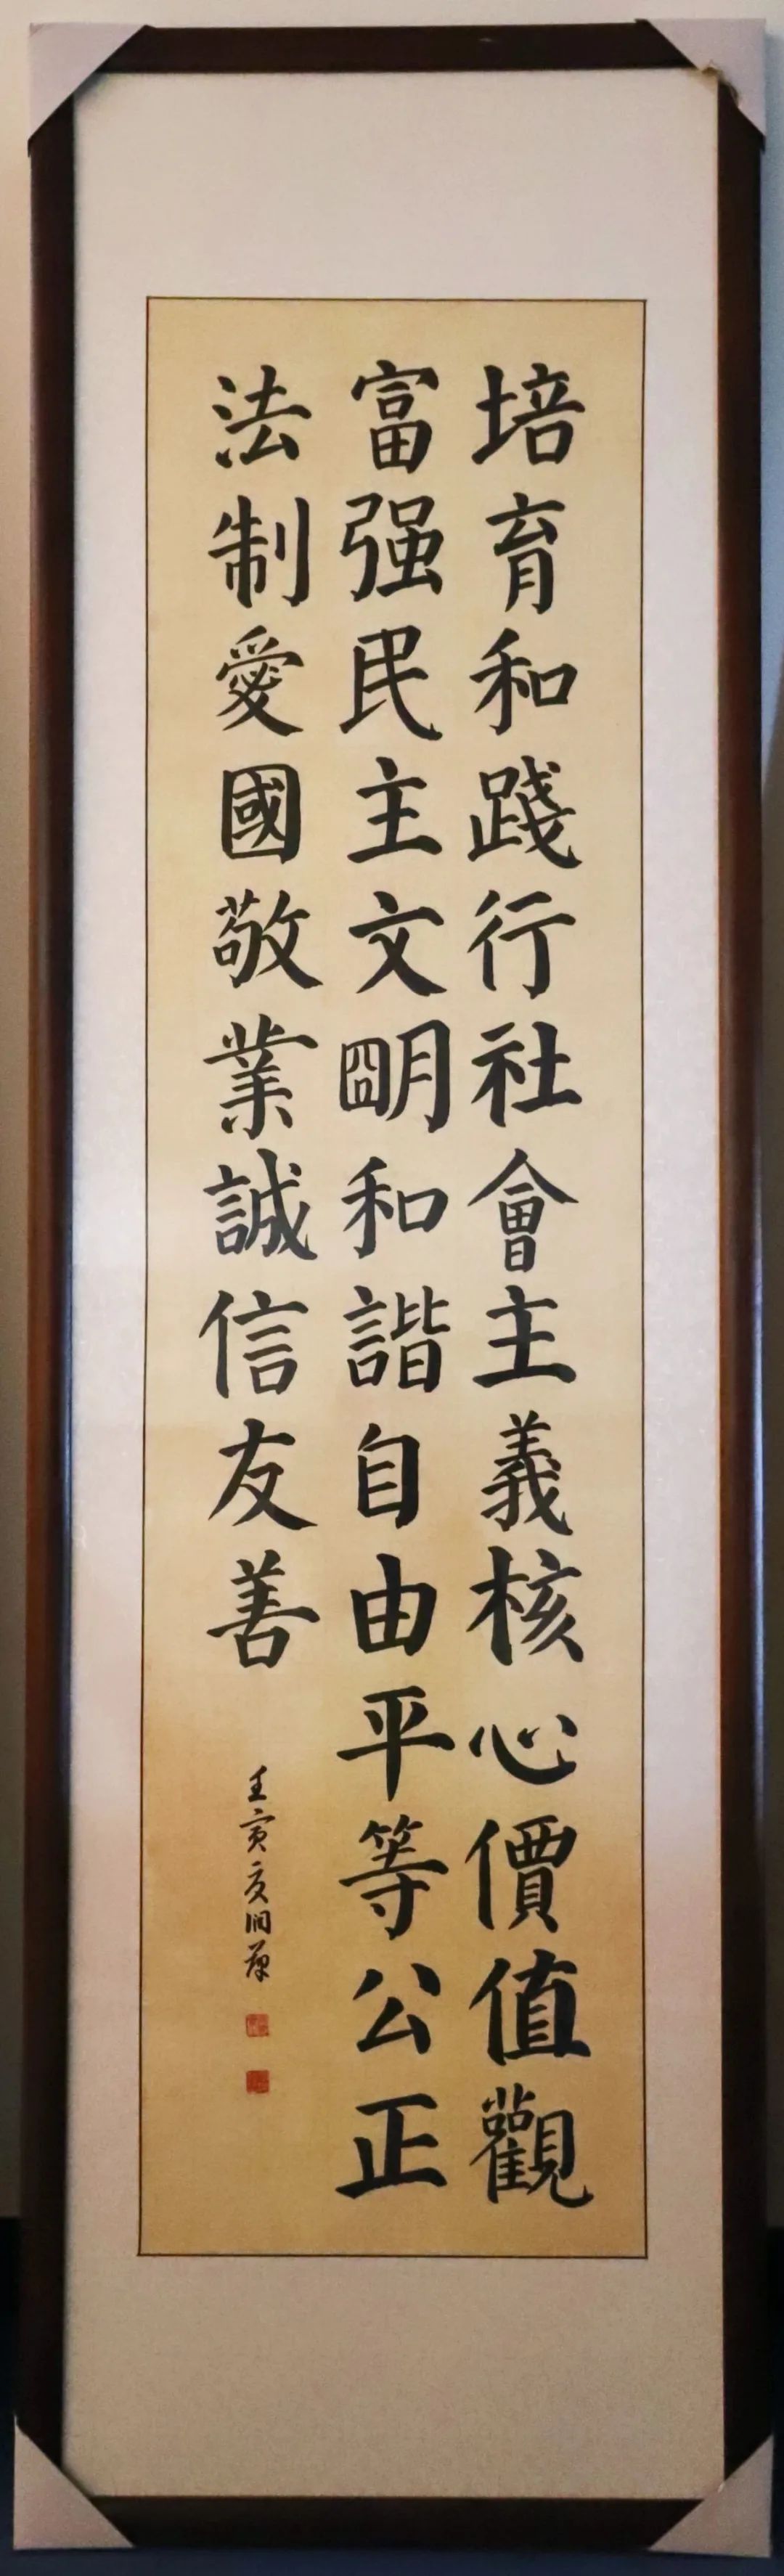 培育和踐行社會主義核心價值觀
富强民主文朙和諧自由平等公正
法制愛國敬業誠信友善
壬寅夏